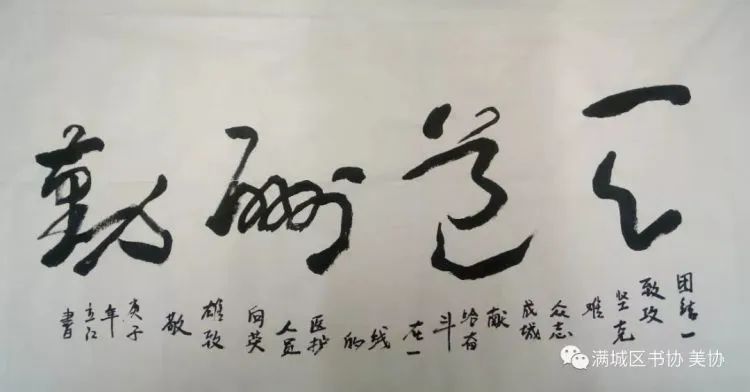 天道酬勤
团结一
致攻
坚克
难
众志
成城
献
给奋
斗
在一
线
的
医护
人员
向英
雄致
敬
庚子
年
立江
書
满城区书协 美协